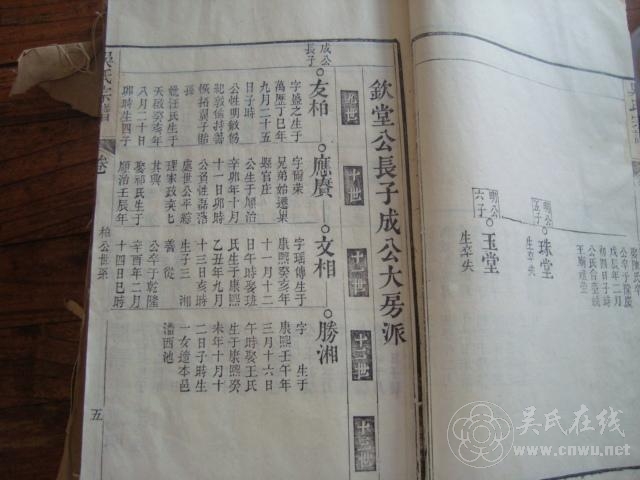 明公
五子
珠堂
生卒失
明公
六子
玉堂
生卒失
欽堂公長子成公大房派
十世
十一世
十二世
十三世
成公
長子
友柏
字盛之生于
萬歷丁巳年
九月二十五
日子時
公性明敏
孫
娶汪氏生于
天啟癸亥年
八月二十日
卯時生四子
應廣
字爾榮
兄弟始遷
縣官庄
公生于順治
辛卯年十月
十一日卯時
處世公平
理家政
其興
娶祁氏生于
順治壬辰年
文相
字瑶傳生于
康熙癸亥年
十一月十二
日午時娶
氏生于康熙
乙丑年九月
十三日亥時
生子三湘
義從
公卒于乾隆
辛酉年二月
十四日巳時
勝湘
字 生于
康熙壬午年
三月十六日
午時娶王氏
生于康熙癸
未年十月十
二日子時生
一女適本邑
潘西池
吳氏宗譜
卷
柏公世系
五
吴氏在线
www.cnwu.net